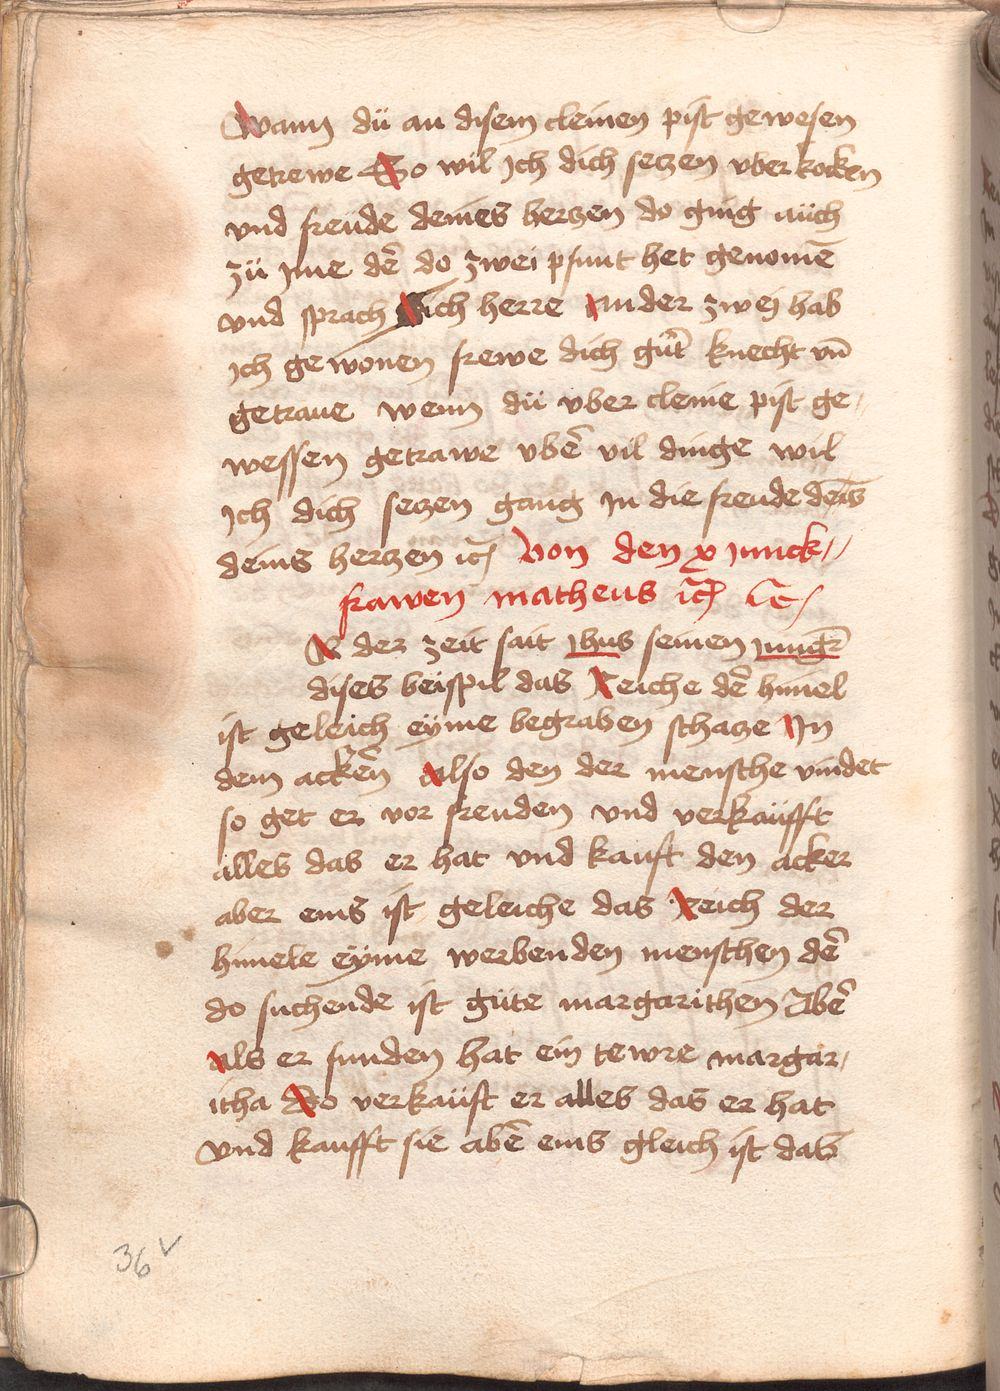 Wann dü an disem cleinen pist gewesen
getrewe So wil Jch dich seczen vber kocken
vnd freüde deines herczen do ging aüch
zü Jme dē do zwei pfunt het genomē
vnd sprach sich herre ander zwej hab
Jch gewonen frewe dich gūt knecht vn̄
getraue wenn dü vber cleine pist ge-
wessen getrawe vbē vil dinge wil
Jch dich seczen gang Jn die freude deīs
deins herczen ꝛc Von den x Junck-
frawen matheus
der zeit sait Jhus seinen Jungē
dises beispil das Reiche dē himel
ist geleich eÿme begraben schacze Jn
dem ackēn Also den der mensche vindet
so get er vor freuden vnd verkaüfft
alles das er hat vnd kauft den acker
aber eins ist geleiche das Reich der
himele eÿme werbenden menschen dē
do suchende ist güte margarithen Abē
Als er funden hat ein tewre margar-
itha Do verkaüft er alles das er hat
vnd kaufft sie abē eins gleich ist das
36v